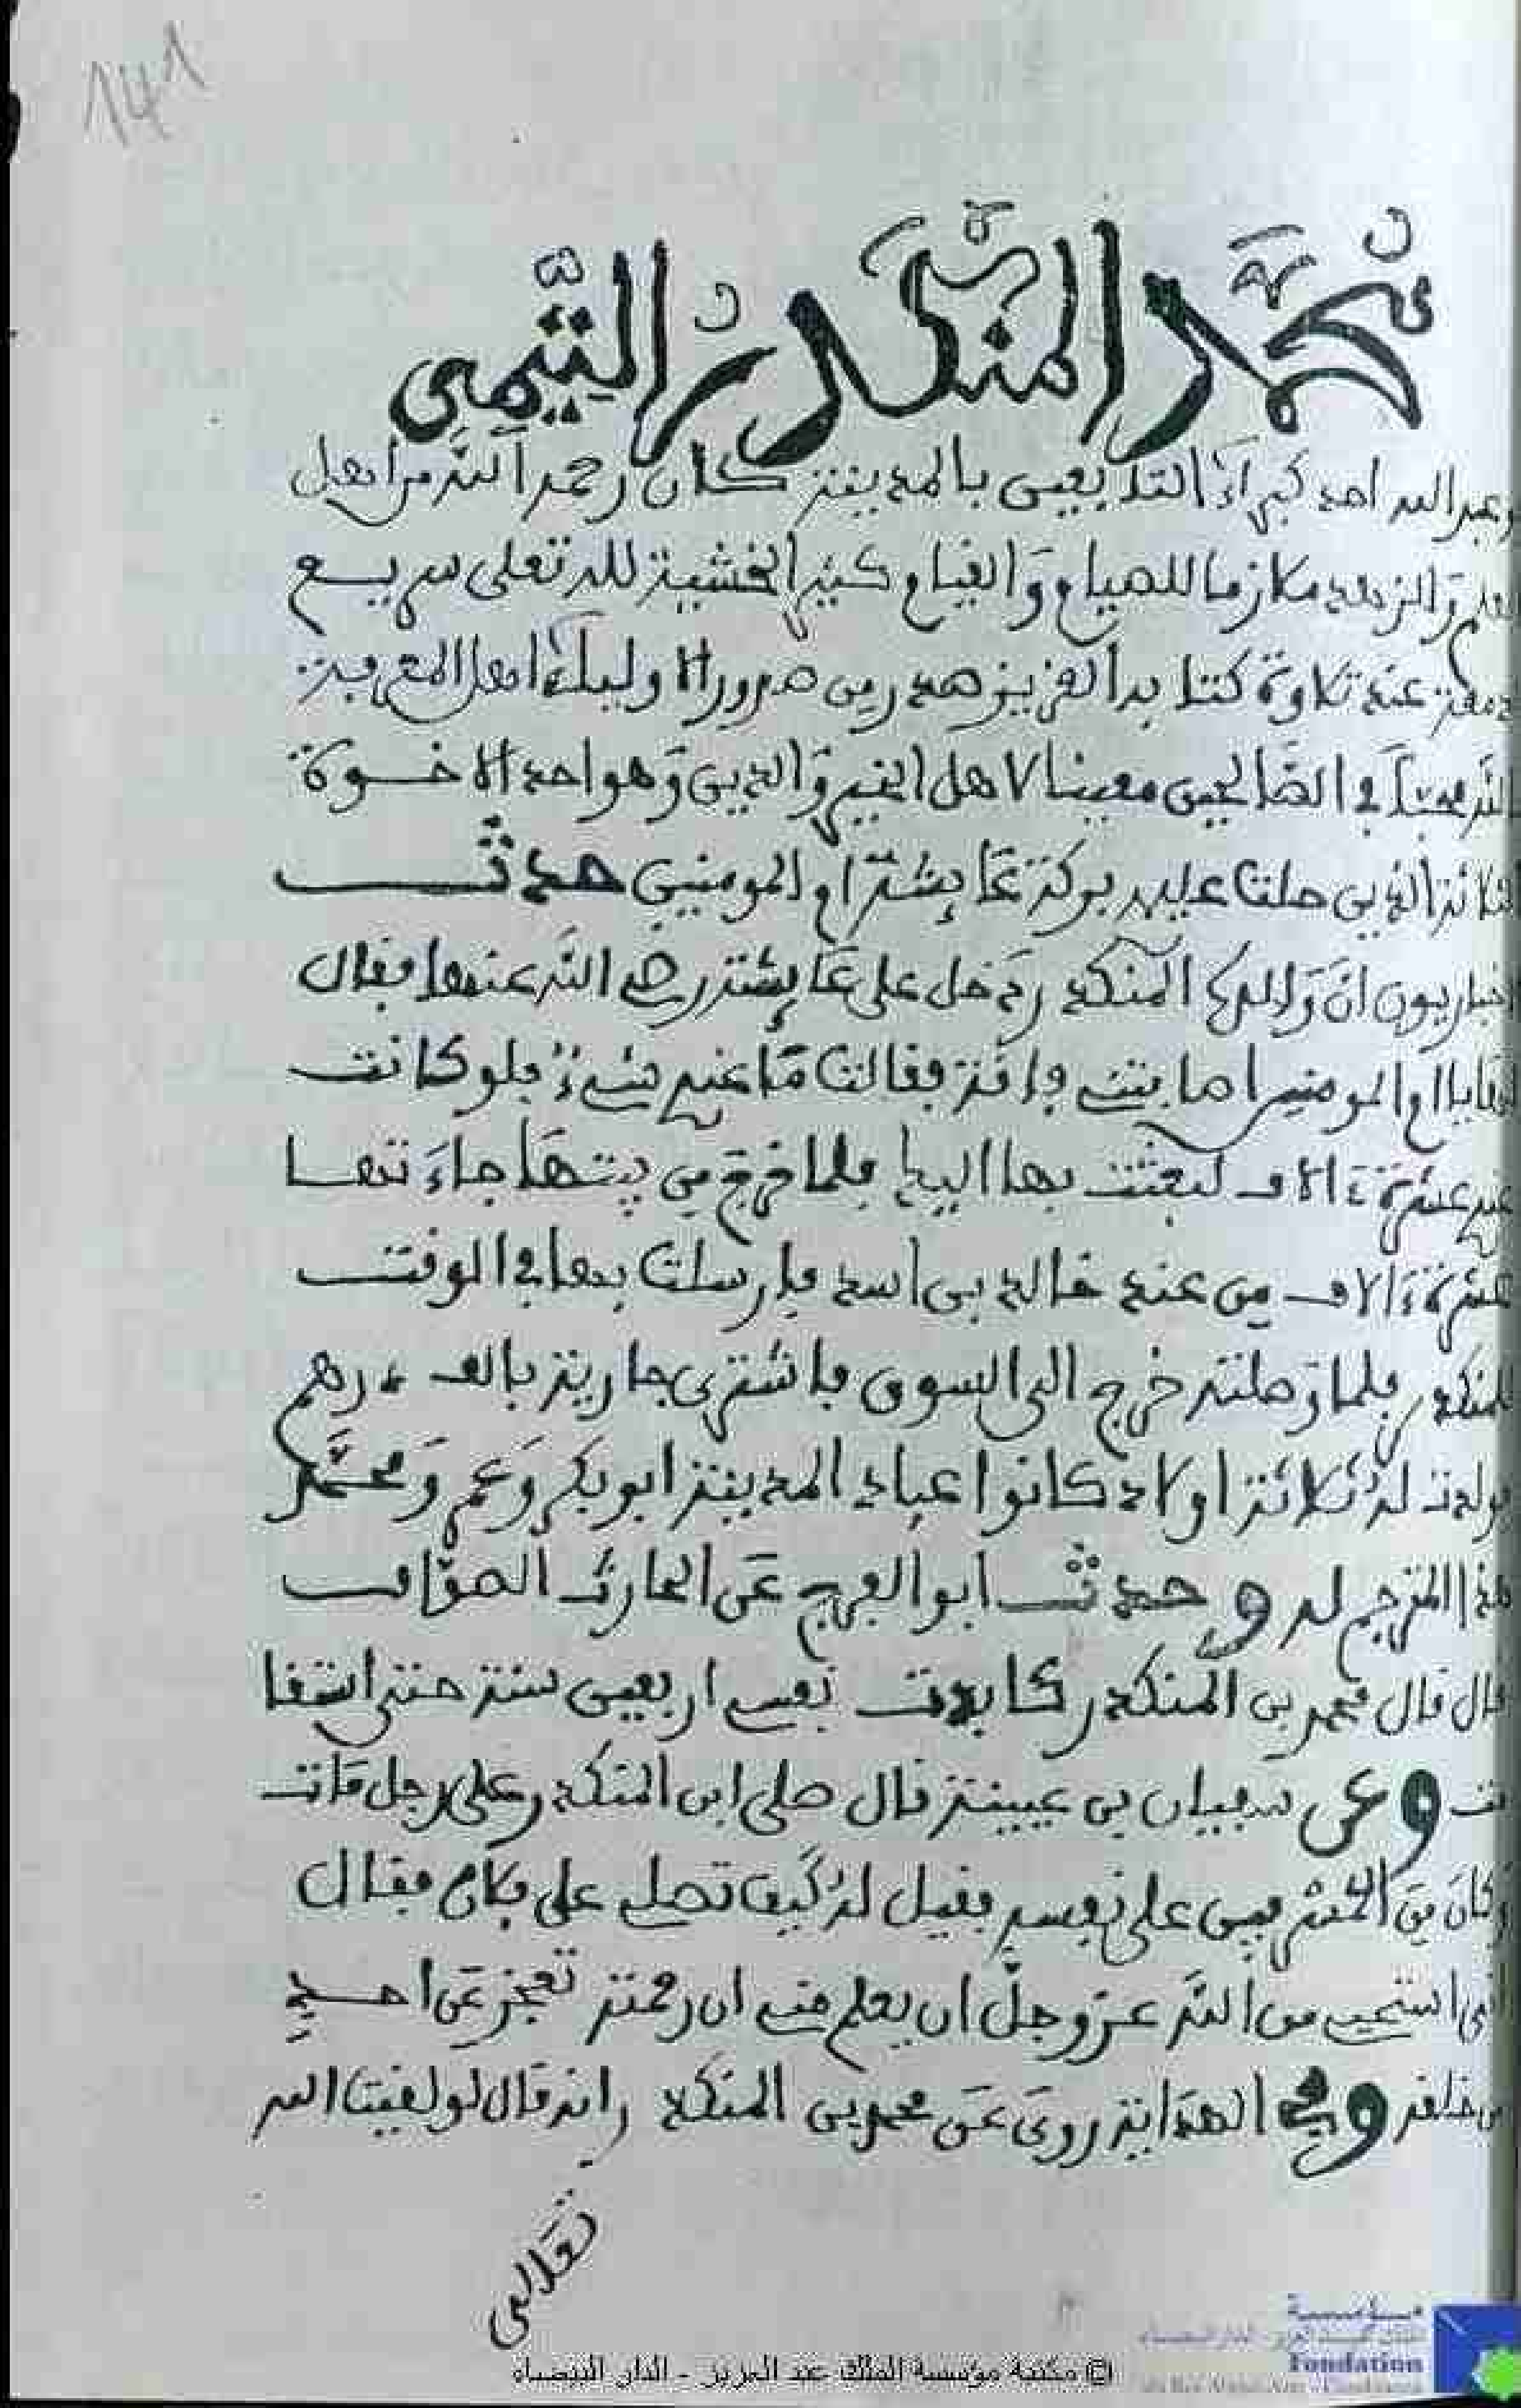 141
محمد المنكدر التيمي
عبد الله احد كبراء التابعين بالمدينة كان رحمه الله من اهل
العلم والزهد ملازما للصيام والقيام كثير الخشية لله تعلى سريع
الدمعة عند تلاوة كتابه العزيز صدر من صدور الاولياء اهل المعرفة
بالله محببا في الصالحين معينا لاهل الخير والدين وهو احد الاخوة
الثلاثة الذين حلت عليهم بركة عائشة ام المومنين حدث
اخباريون ان والدهم المنكدر دخل على عائشة رضي الله عنها فقال
لها يا ام المومنين اصابتني فاقة فقالت ما عندي شيء فلو كانت
عندي عشرة ءالاف لبعثت بها اليك فلما خرج من بيتها جاءتها
عشرة ءالاف من عند خالد بن اسد فارسلت بها في الوقت
للمنكدر فلما وصلته خرج الى السوق فاشترى جارية بالف درهم
فولدت له ثلاثة اولاد كانوا عباد المدينة ابو بكر وعمر ومحمد
هذا المترجم له وحدث ابو الفرج عن الحارث الصواف
قال قال محمد بن المنكدر كابدت نفسي اربعين سنة حتى استقا
مت وعن سفيان بن عيينة قال صلى ابن المنكدر على رجل مات
وكان من المسرفين على نفسه فقيل له كيف تصلي على فلان فقال
اني استحيي من الله عز وجل ان يعلم مني ان رحمته تعجز عن احد
من خلقه وفي الهداية روي عن محمد بن المنكدر انه قال لو لقيت الله
تعالى
مؤسسة
Fondation
© مكتبة مؤسسة الملك عبد العزيز - الدار البيضاء